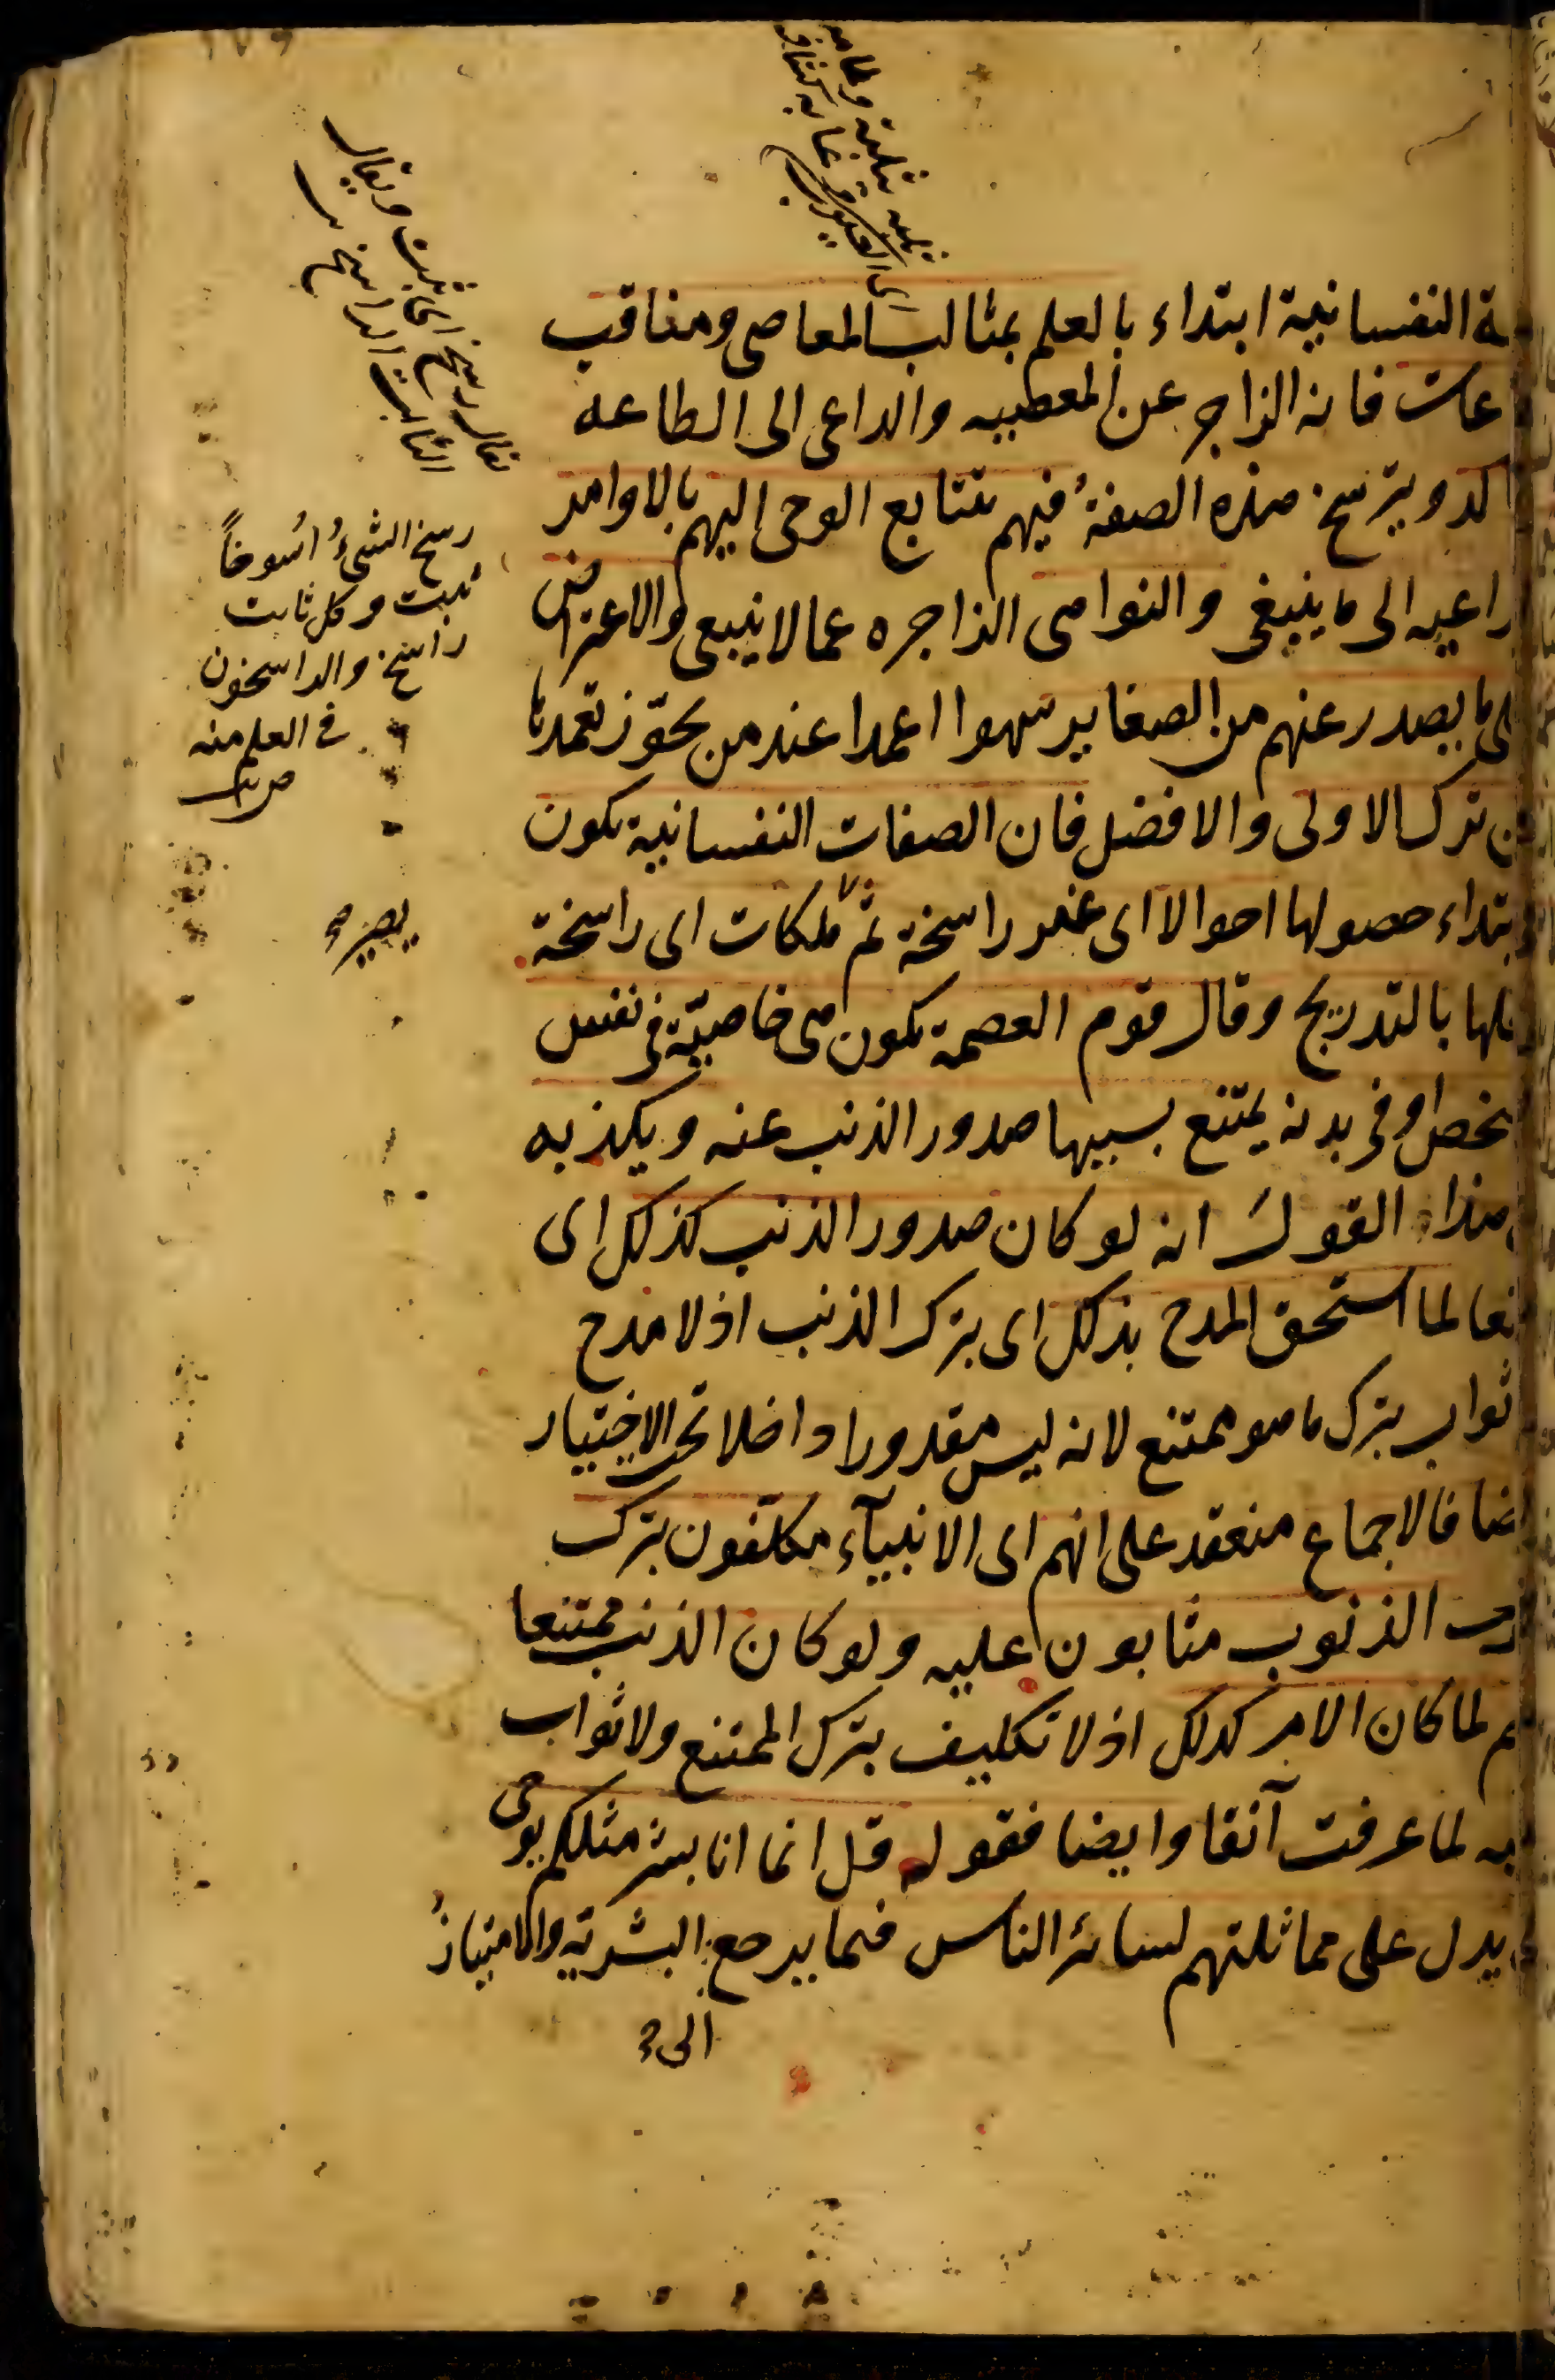 ة النفسانية ابتداء بالعلم بمثالب المعاصى ومناقب
عات فانه الزاجر عن المعصيه والداعى الى الطاعه
كد ويترسخ هذه الصفة فيهم بتتابع الوحى اليهم بالاوامر
داعيه الى ما ينبغى والنواهى الزاجره عما لا ينبغى والاعتراض
لى ما يصدر عنهم من الصغاير سهوا اعمدا عند من يجوّز تعمدها
ن ترك الاولى والافضل فان الصفات النفسانية تكون
بتداء حصولها احوالا اى غير راسخة ثم ملكات اى راسخة
لها بالتدريج وقال قوم العصمة تكون هى خاصيّة فى نفس
خص او فى بدنه يمتنع بسببها صدور الذنب عنه ويكذبه
هذا القول انه لو كان صدور الذنب كذلك اى
نعا لما استحق المدح بذلك اى بترك الذنب اذ لا مدح
ثواب بترك ما هو ممتنع لانه ليس مقدورا داخلا تحت الاختيار
ضا فالاجماع منعقد على انهم اى الانبيآء مكلّفون بترك
الذنوب مثابون عليه ولو كان الذنب ممتنعا
م لما كان الامر كذلك اذ لا تكليف بترك الممتنع ولا ثواب
يه لما عرفت آنفا وايضا فقوله قل انما انا بشر مثلكم يوحى
يدل على مماثلتهم لسائر الناس فيما يرجع البشرية والامتياز
الى
يقال رسخ اى ثبت ويقال
الثابت الراسخ
رسخ الشىء رسوخاً
ثبت وكل ثابت
راسخ والراسخون
فى العلم منه
يصير
اى العيوب